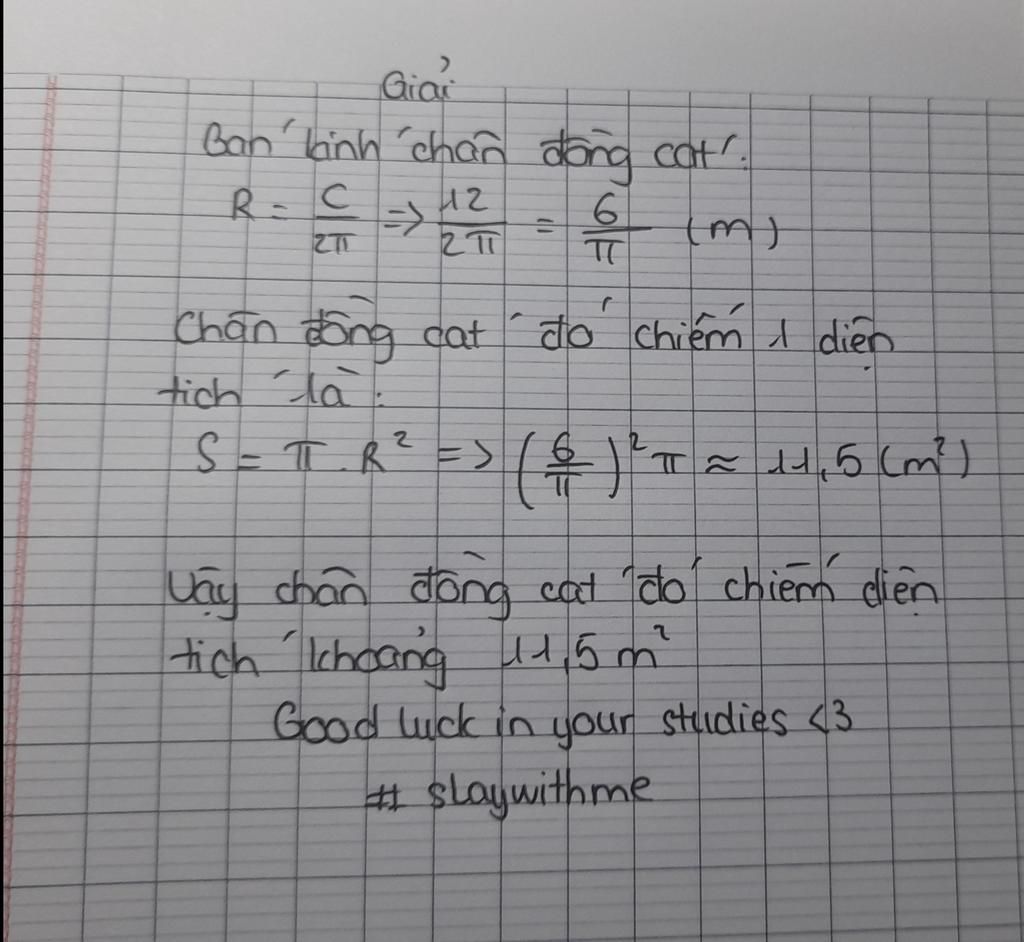 Giải
Bán kính chân đống cát:
R = C/2π => 12/2π = 6/π (m)
Chân đống cát đó chiếm 1 diện
tích là:
S = π . R² => (6/π)² π ≈ 11,5 (m²)
Vậy chân đống cát đó chiếm diện
tích khoảng 11,5 m²
Good luck in your studies <3
# slaywithme